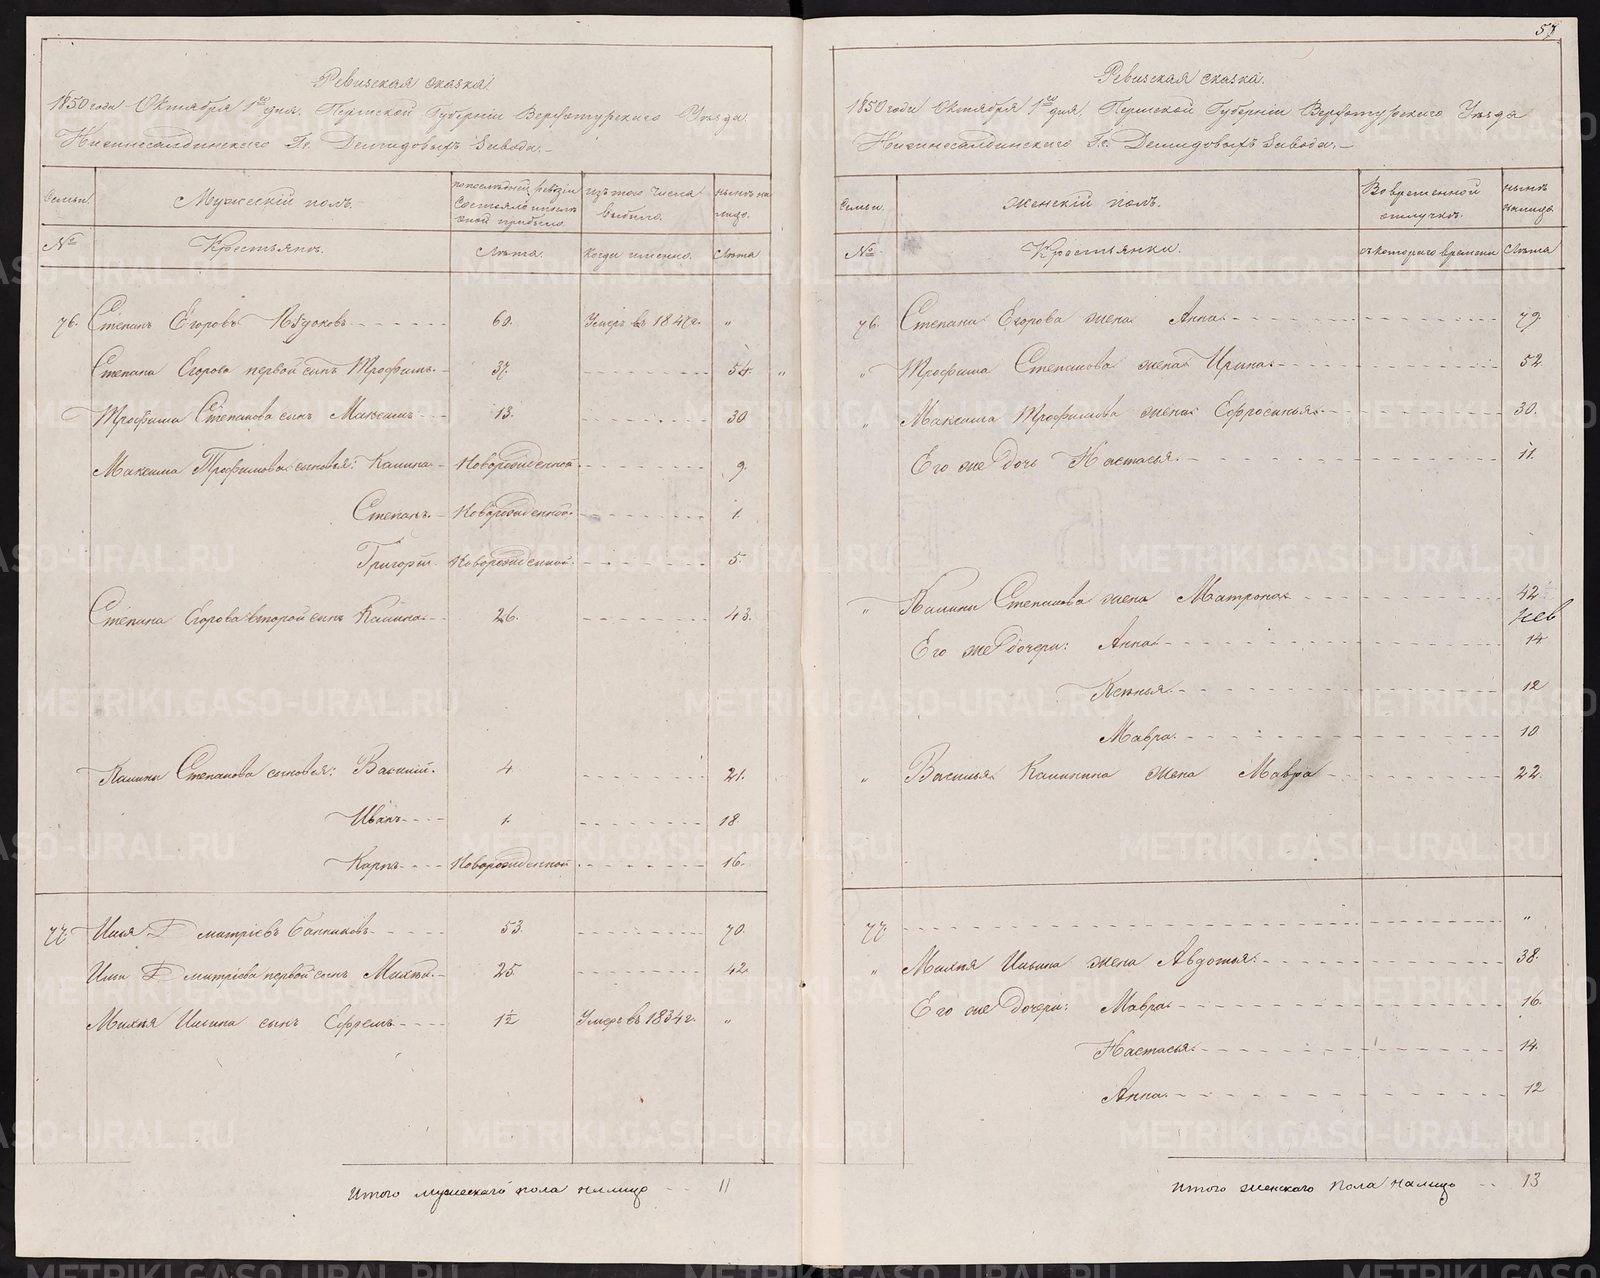 Ревизская сказка.
1850 года Октября 1го дня. Пермской Губерніи Верхотурскаго Уѣзда
Нижнесалдинскаго Гг. Демидовыхъ Завода.
Семьи.
Мужескій полъ.
по последней ревизіи состояло и после оной прибыло.
изъ того числа выбыло.
нынѣ на лицо.
№
Крестьянъ.
Лѣта.
когда именно.
Лѣта
76. Степанъ Егоровъ 60. Умеръ въ 1847г. "
Степана Егорова первой сынъ Трофимъ. 37. 54. "
Трофима Степанова сынъ Максимъ 13. 30
Максима Трофимова сыновья: Калина Новорожденной 9.
Степанъ. Новорожденной. 1.
Григорей. Новорожденной. 5.
Степана Егорова второй сынъ Калина. 26. 43.
Калины Степанова сыновья: Василій. 4. 21.
Иванъ 1. 18.
Карпъ Новорожденной 16.
77. Илья Дмитріевъ Банниковъ 53. 70.
Ильи Дмитріева первой сынъ Михѣй. 25 42.
Михѣя Ильина сынъ Ефремъ 1½ Умеръ въ 1834г. "
Итого мужескаго пола налицо 11
57
Ревизская сказка.
1850 года Октября 1го дня, Пермской Губерніи Верхотурскаго Уѣзда
Нижнесалдинскаго Г.г. Демидовыхъ Завода.
Семьи.
Женскій полъ.
Во временной отлучкѣ.
нынѣ налицо.
№
Крестьянки.
съ котораго времени
Лѣта
76. Степана Егорова жена Анна. 79.
" Трофима Степанова жена Ирина 52.
" Максима Трофимова жена Ефросинья. 30.
Его же дочь Настасья. 11.
" Калины Степанова жена Матрона 42
Его же дочери: Анна 14
Ксенья. 12
Мавра. 10.
" Василья Калинина жена Мавра 22.
77. "
" Михѣя Ильина жена Авдотья. 38.
Его же дочери: Мавра. 16.
Настасья. 14.
Анна. 12
Итого женскаго пола налицо 13
METRIKI.GASO-URAL.RU